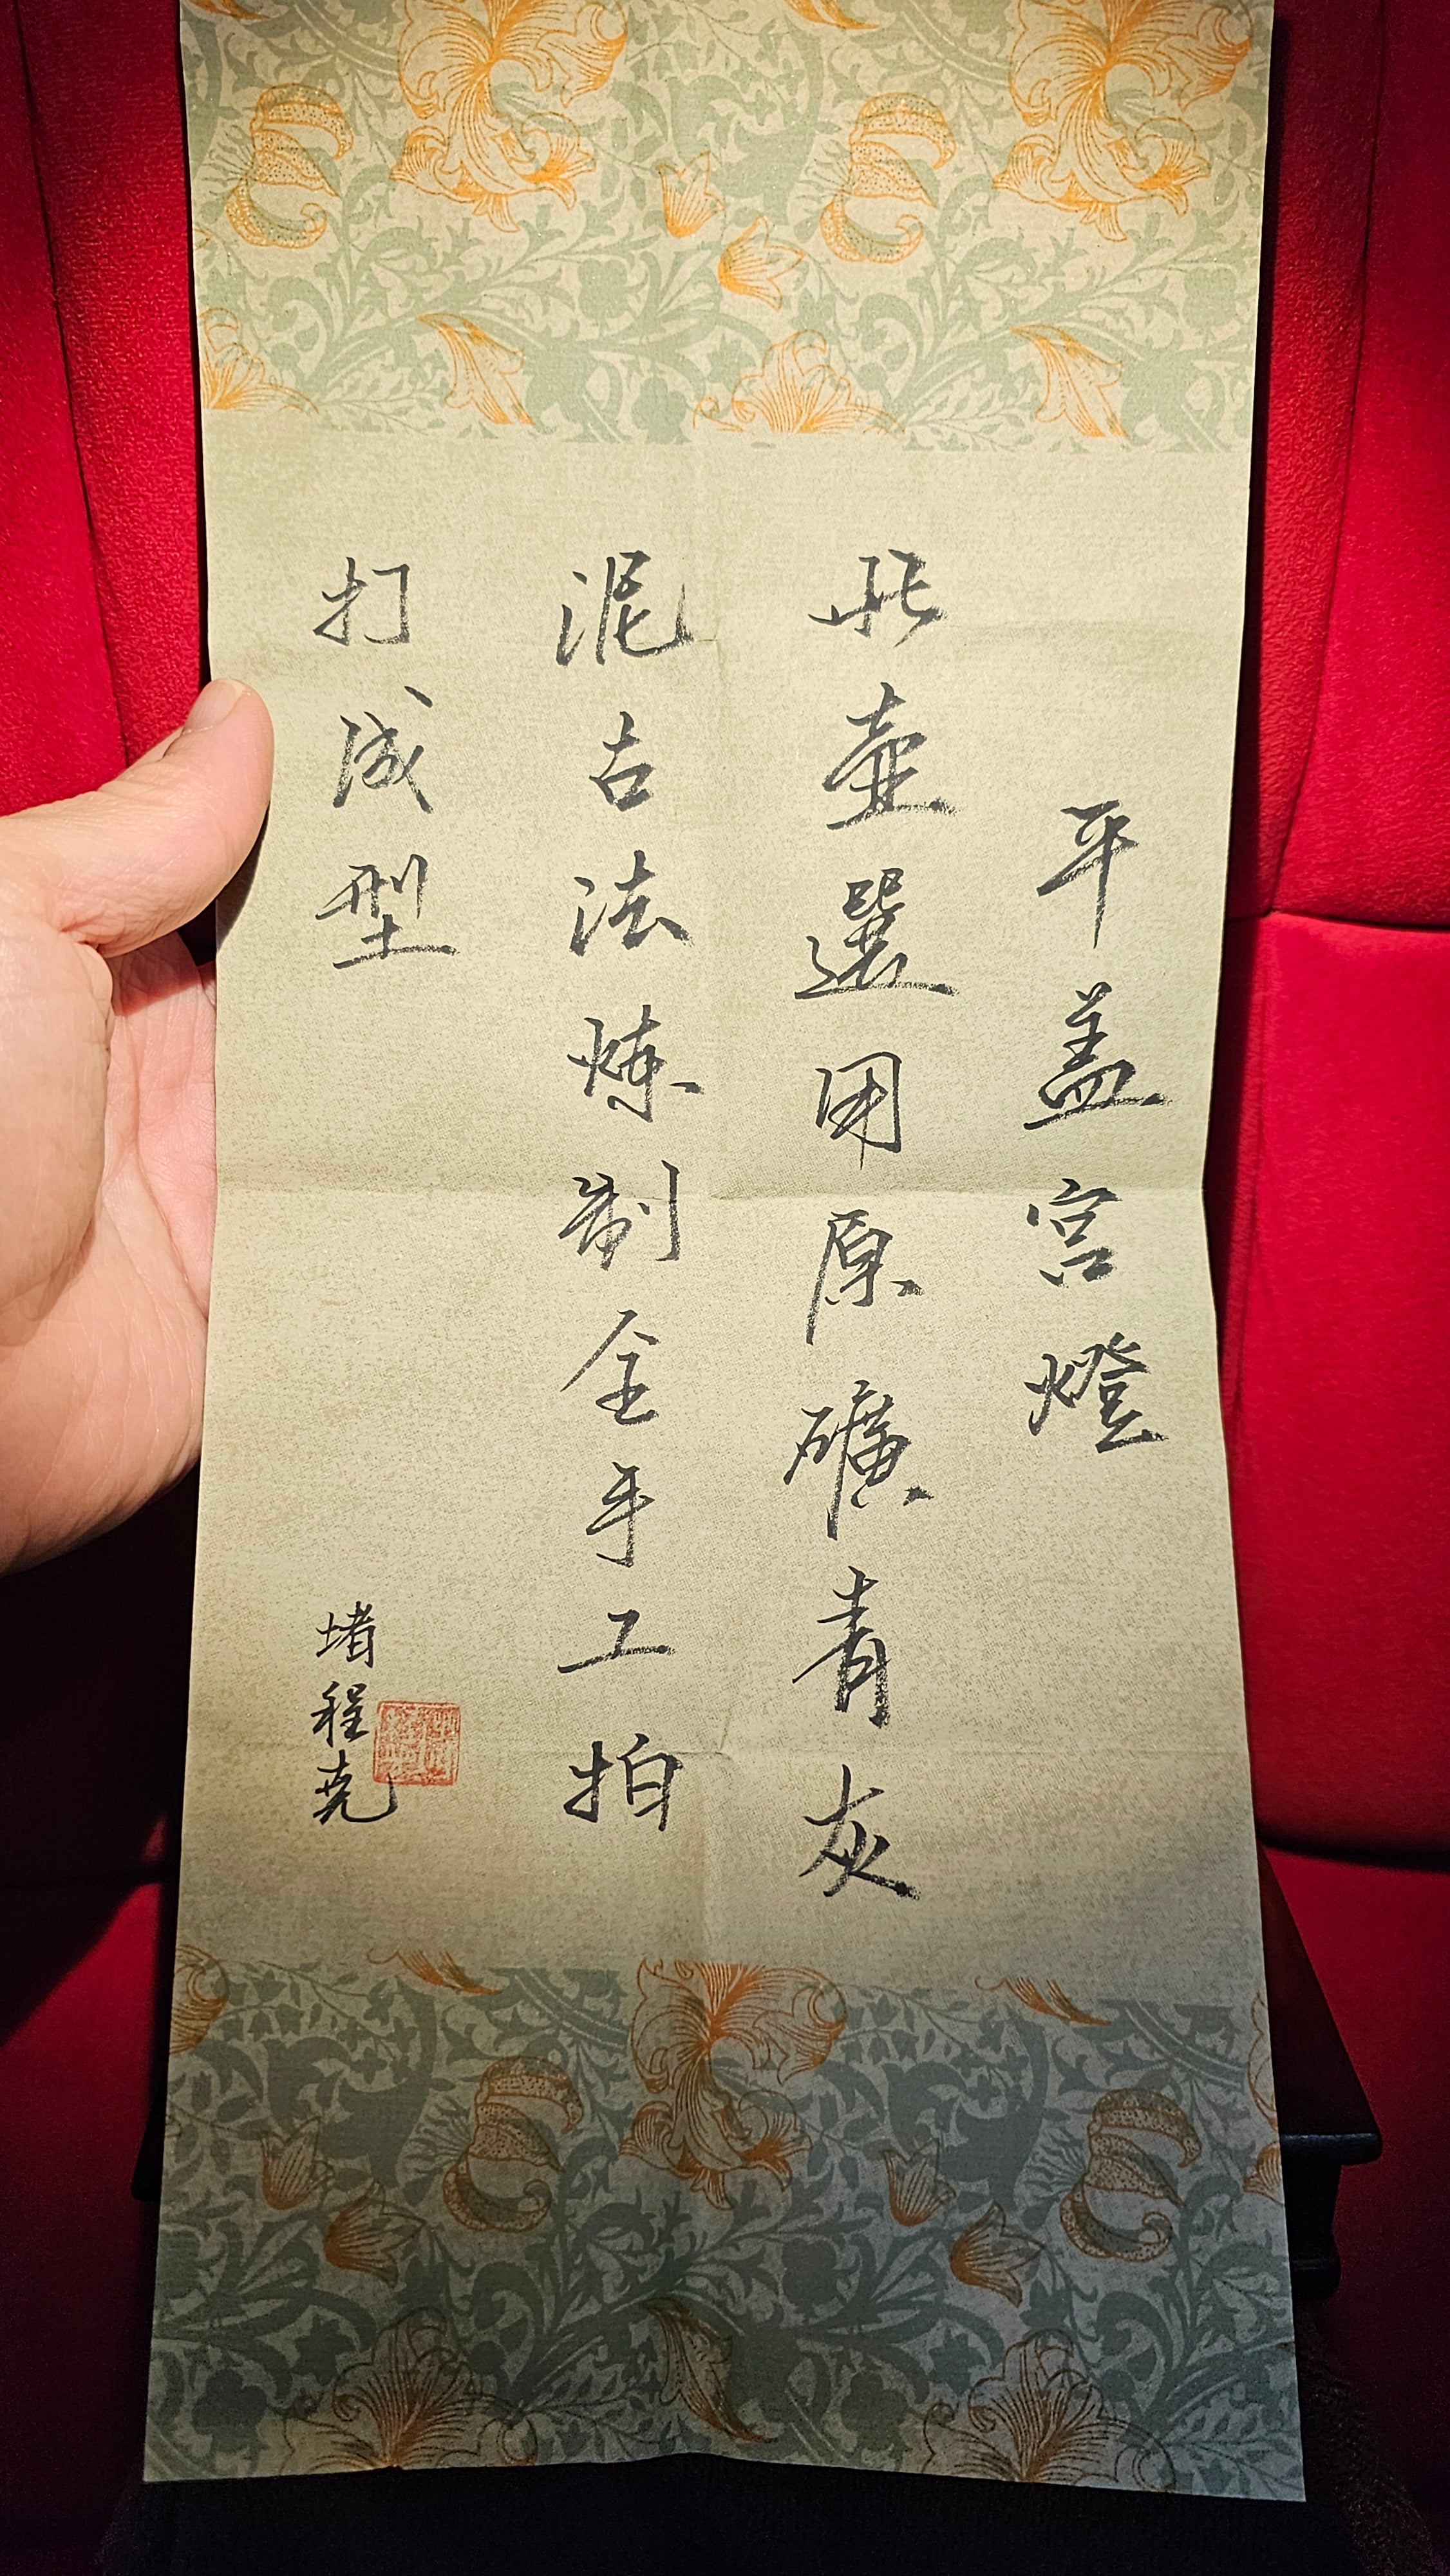 平盖宫燈
此壷選用原礦青灰
泥古法煉制全手工拍
打成型
堵程尧